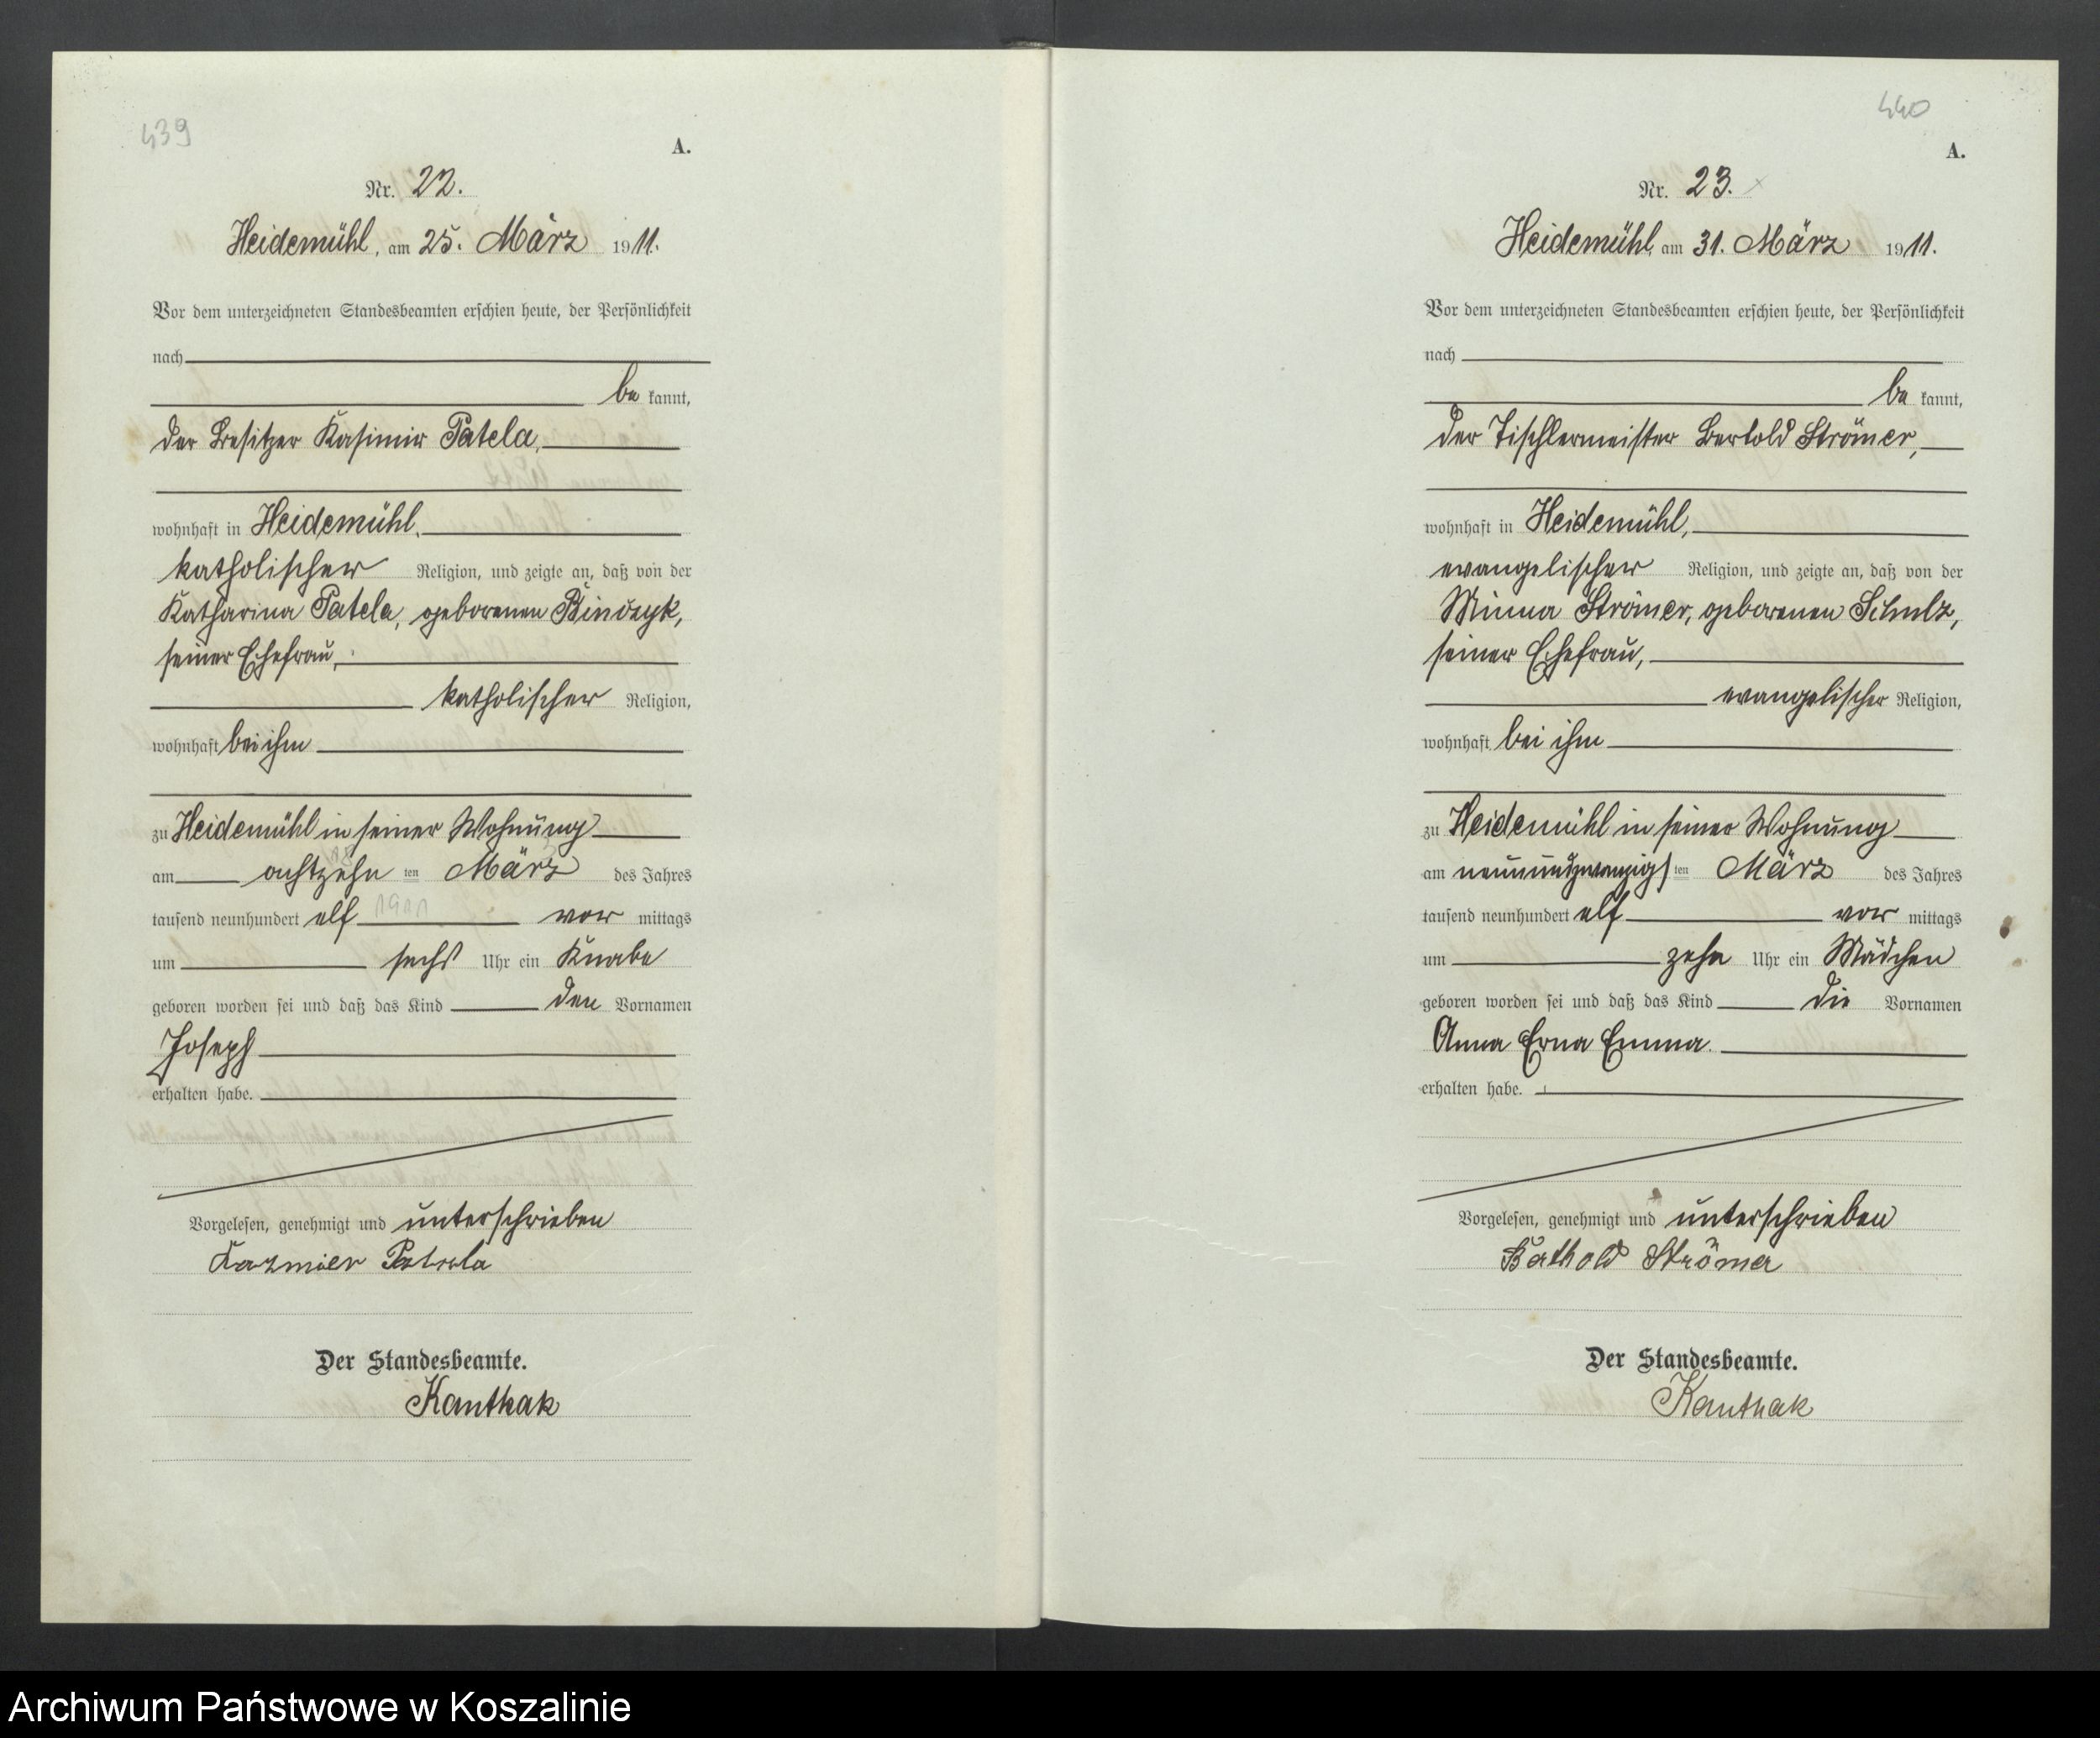 439
A.
Nr. 22.
Heidemühl, am 25. März 1911.
Vor dem unterzeichneten Standesbeamten erschien heute, der Persönlichkeit
nach
be kannt,
der Besitzer Kasimir Patela,
wohnhaft in Heidemühl,
katholischer Religion, und zeigte an, daß von der
Katharina Patela, geborenen Binczyk,
seiner Ehefrau,
katholischer Religion,
wohnhaft bei ihm
zu Heidemühl in seiner Wohnung
am achtzehn ten März des Jahres
tausend neunhundert elf 1911 vor mittags
um sechs Uhr ein Knabe
geboren worden sei und daß das Kind den Vornamen
Joseph
erhalten habe.
Vorgelesen, genehmigt und unterschrieben
Kazmier Patela
Der Standesbeamte.
Kanthak
440
A.
Nr. 23.
Heidemühl, am 31. März 1911.
Vor dem unterzeichneten Standesbeamten erschien heute, der Persönlichkeit
nach
be kannt,
der Tischlermeister Bertold Strömer,
wohnhaft in Heidemühl,
evangelischer Religion, und zeigte an, daß von der
Minna Strömer, geborenen Schulz,
seiner Ehefrau,
evangelischer Religion,
wohnhaft bei ihm
zu Heidemühl in seiner Wohnung
am neunundzwanzigs ten März des Jahres
tausend neunhundert elf vor mittags
um zehn Uhr ein Mädchen
geboren worden sei und daß das Kind die Vornamen
Anna Erna Emma
erhalten habe.
Vorgelesen, genehmigt und unterschrieben
Bathold Strömer
Der Standesbeamte.
Kanthak
Archiwum Państwowe w Koszalinie